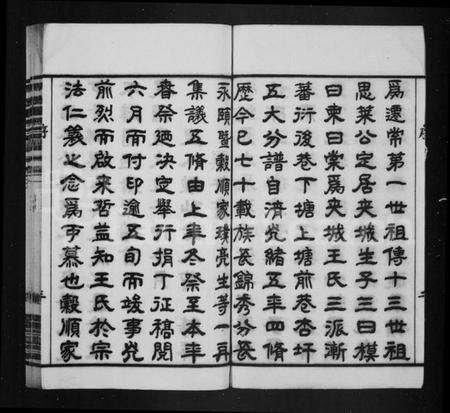 為遷常第一世祖傳十三世祖
思萊公定居夾城生子三曰模
曰柬曰棠為夾城王氏三派漸
蕃衍後巷下塘上塘前巷杏圩
五大分譜自清光緒五年四脩
歷今已七十載族長錦秀分長
永頤暨穀順家璞亮生等一再
集議五脩由上年冬祭至本年
春祭廼決定舉行捐丁征稿閱
六月而付印逾五旬而竣事光
前烈而啟來哲益知王氏於宗
法仁義之念為可慕也穀順家
序